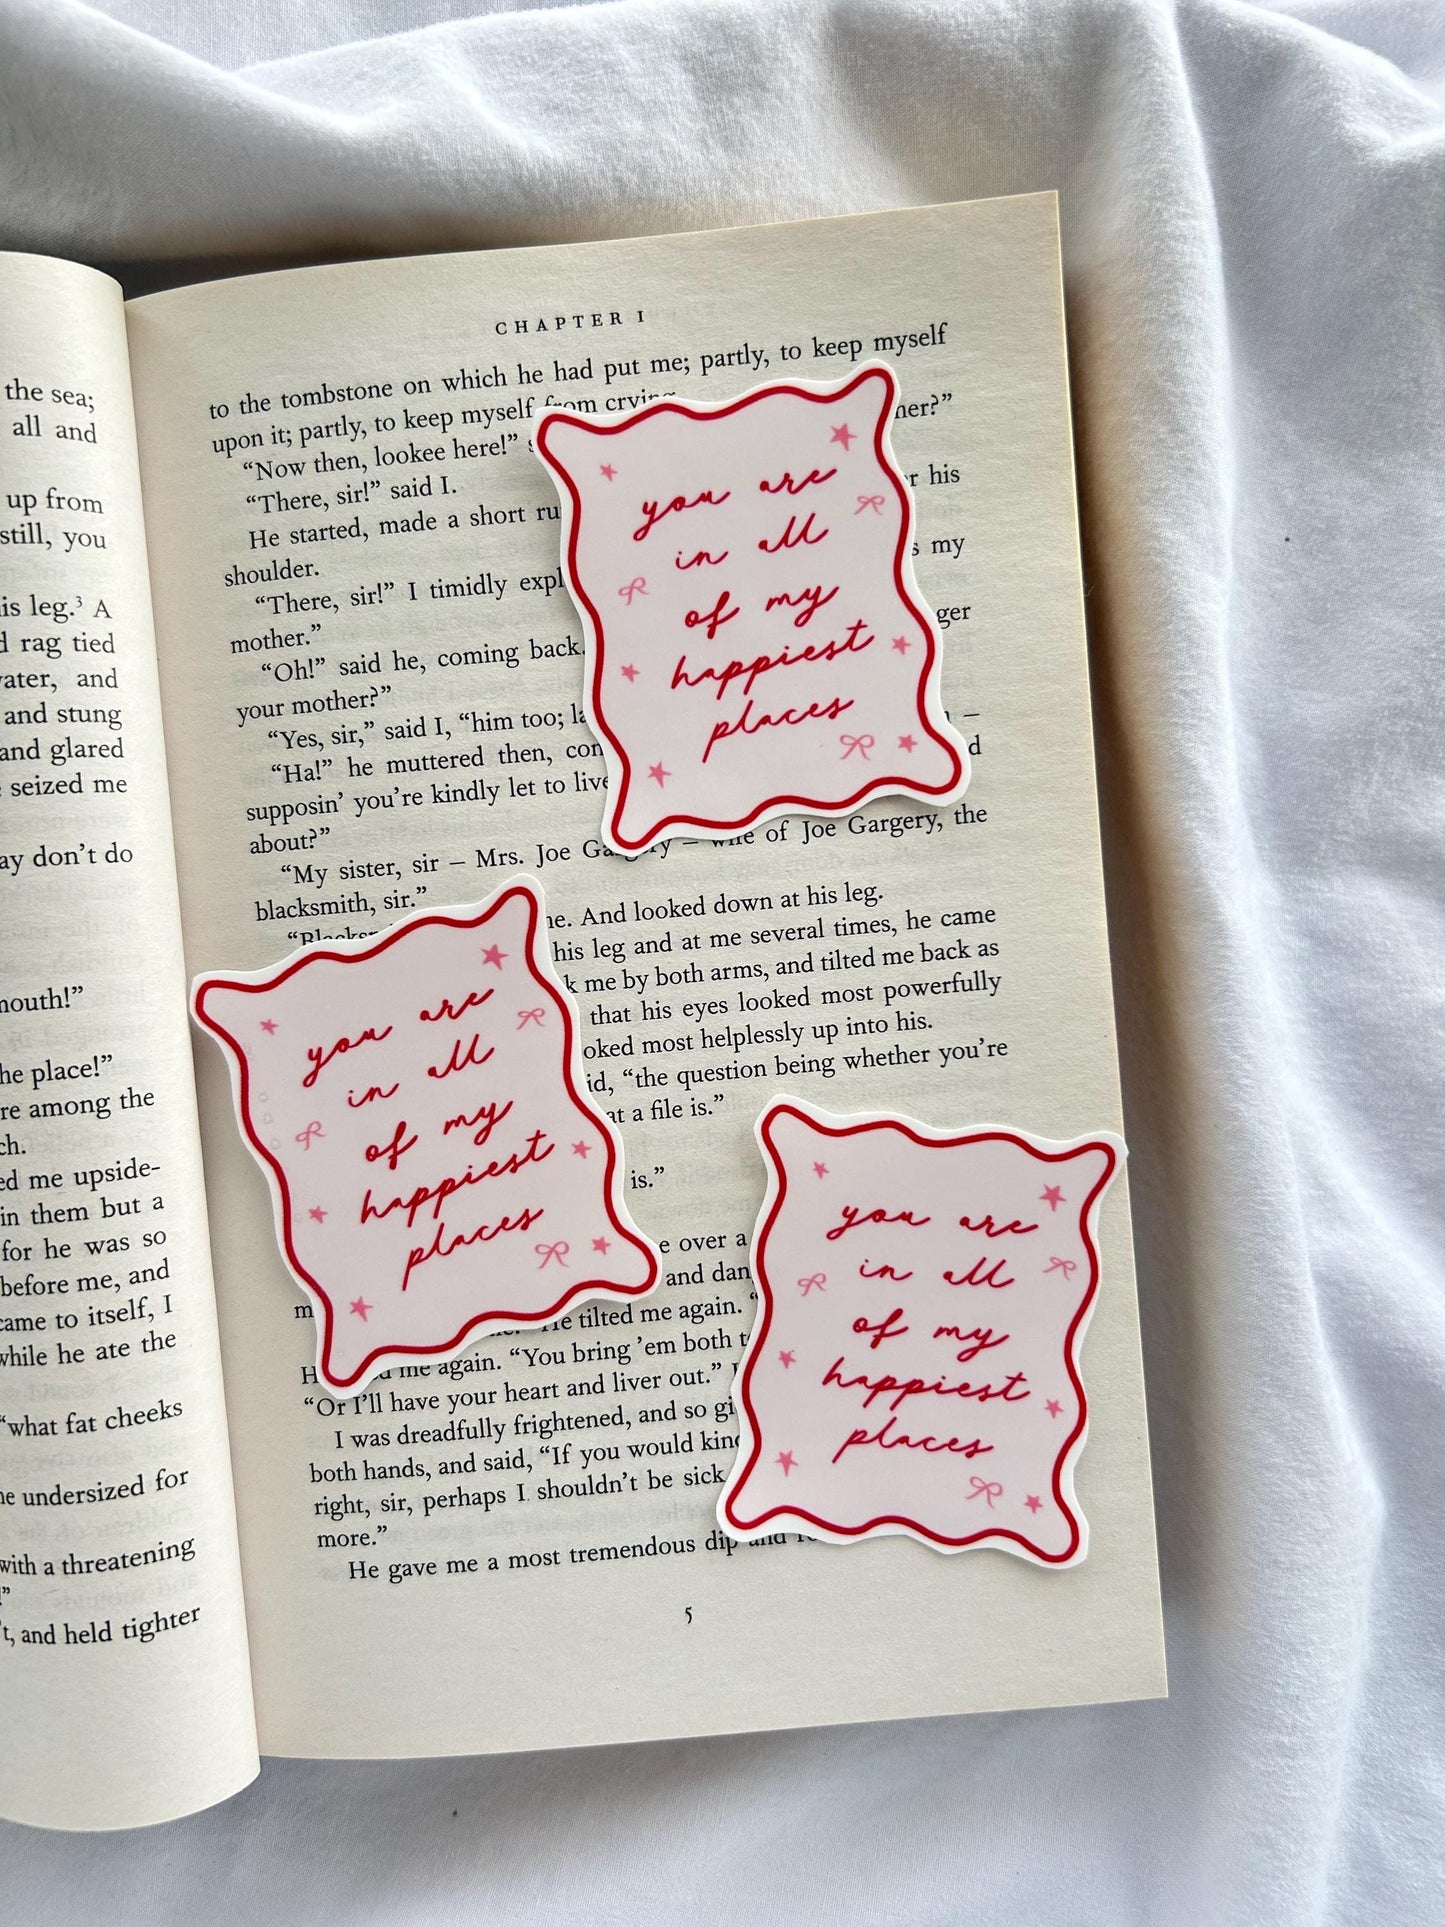 the sea;
all and
up from
still, you
is leg.³ A
rag tied
and
and stung
and glared
seized me
don't do
he place!"
re among the
ed me upside-
in them but a
for he was so
before me, and
came to itself, I
while he ate the
"what fat cheeks
undersized for
with a threatening
and held tighter
CHAPTER I
to the tombstone on which he had put me; partly, to keep myself
upon it; partly, to keep myself from crying
"Now then, lookee here!"
"There, sir!" said I.
He started, made a short
his
shoulder.
my
"There, sir!" I timidly
mother."
"Oh!" said he, coming back.
your mother?"
"Yes, sir," said I, "him too;
–
"Ha!" he muttered then,
supposin' you're kindly let to
about?"
"My sister, sir – Mrs. Joe Gargery – wife of Joe Gargery, the
blacksmith, sir."
And looked down at his leg.
his leg and at me several times, he came
me by both arms, and tilted me back as
that his eyes looked most powerfully
most helplessly up into his.
"the question being whether you're
a file is."
is."
over a
and
tilted me again.
me again. "You bring 'em both
"Or I'll have your heart and liver out."
I was dreadfully frightened, and so
both hands, and said, "If you would
right, sir, perhaps I shouldn't be sick
more."
He gave me a most tremendous dip and
5
you are
in all
of my
happiest
places
you are
in all
of my
happiest
places
you are
in all
of my
happiest
places